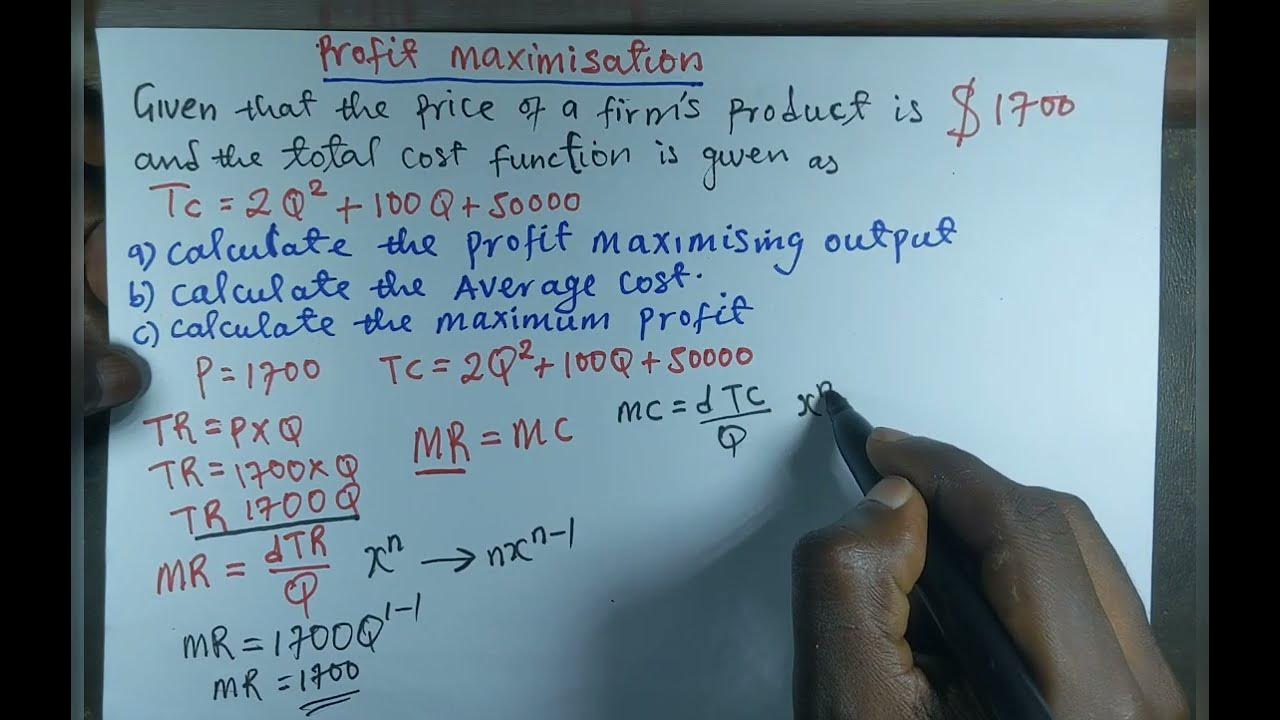 Profit maximisation
Given that the price of a firm's product is $1700
and the total cost function is given as
TC = 2Q² + 100Q + 50000
a) calculate the profit maximising output
b) calculate the Average cost.
c) calculate the maximum profit
P = 1700 TC = 2Q² + 100Q + 50000
TR = P X Q
TR = 1700 X Q
TR 1700Q
MR = dTR/Q xⁿ → nxⁿ⁻¹
MR = 1700Q¹⁻¹
MR = 1700
MR = MC
MC = dTC/Q xⁿ